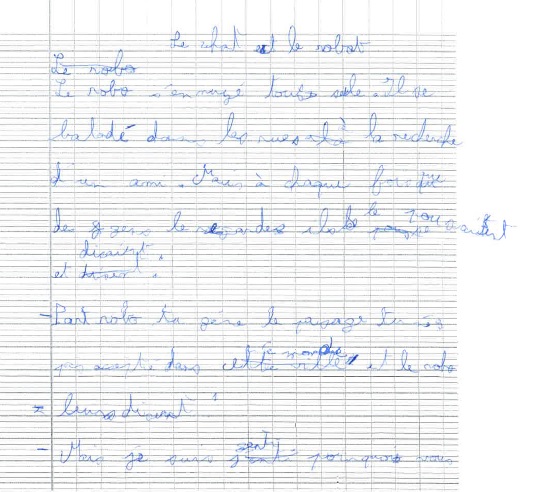 Le chat et le robot
Le robo
Le robo s'ennuyé toute sele. Il se
baladé dans les rues à la recherche
d'un ami. Mais à chaque fois que
des gens le regardes ils le
disaiyt
et :
- Part robo ta gène le paysage tu n'es
pas dans le monde et le robo
leurs disent
- Mais je suis genty pourquois vous